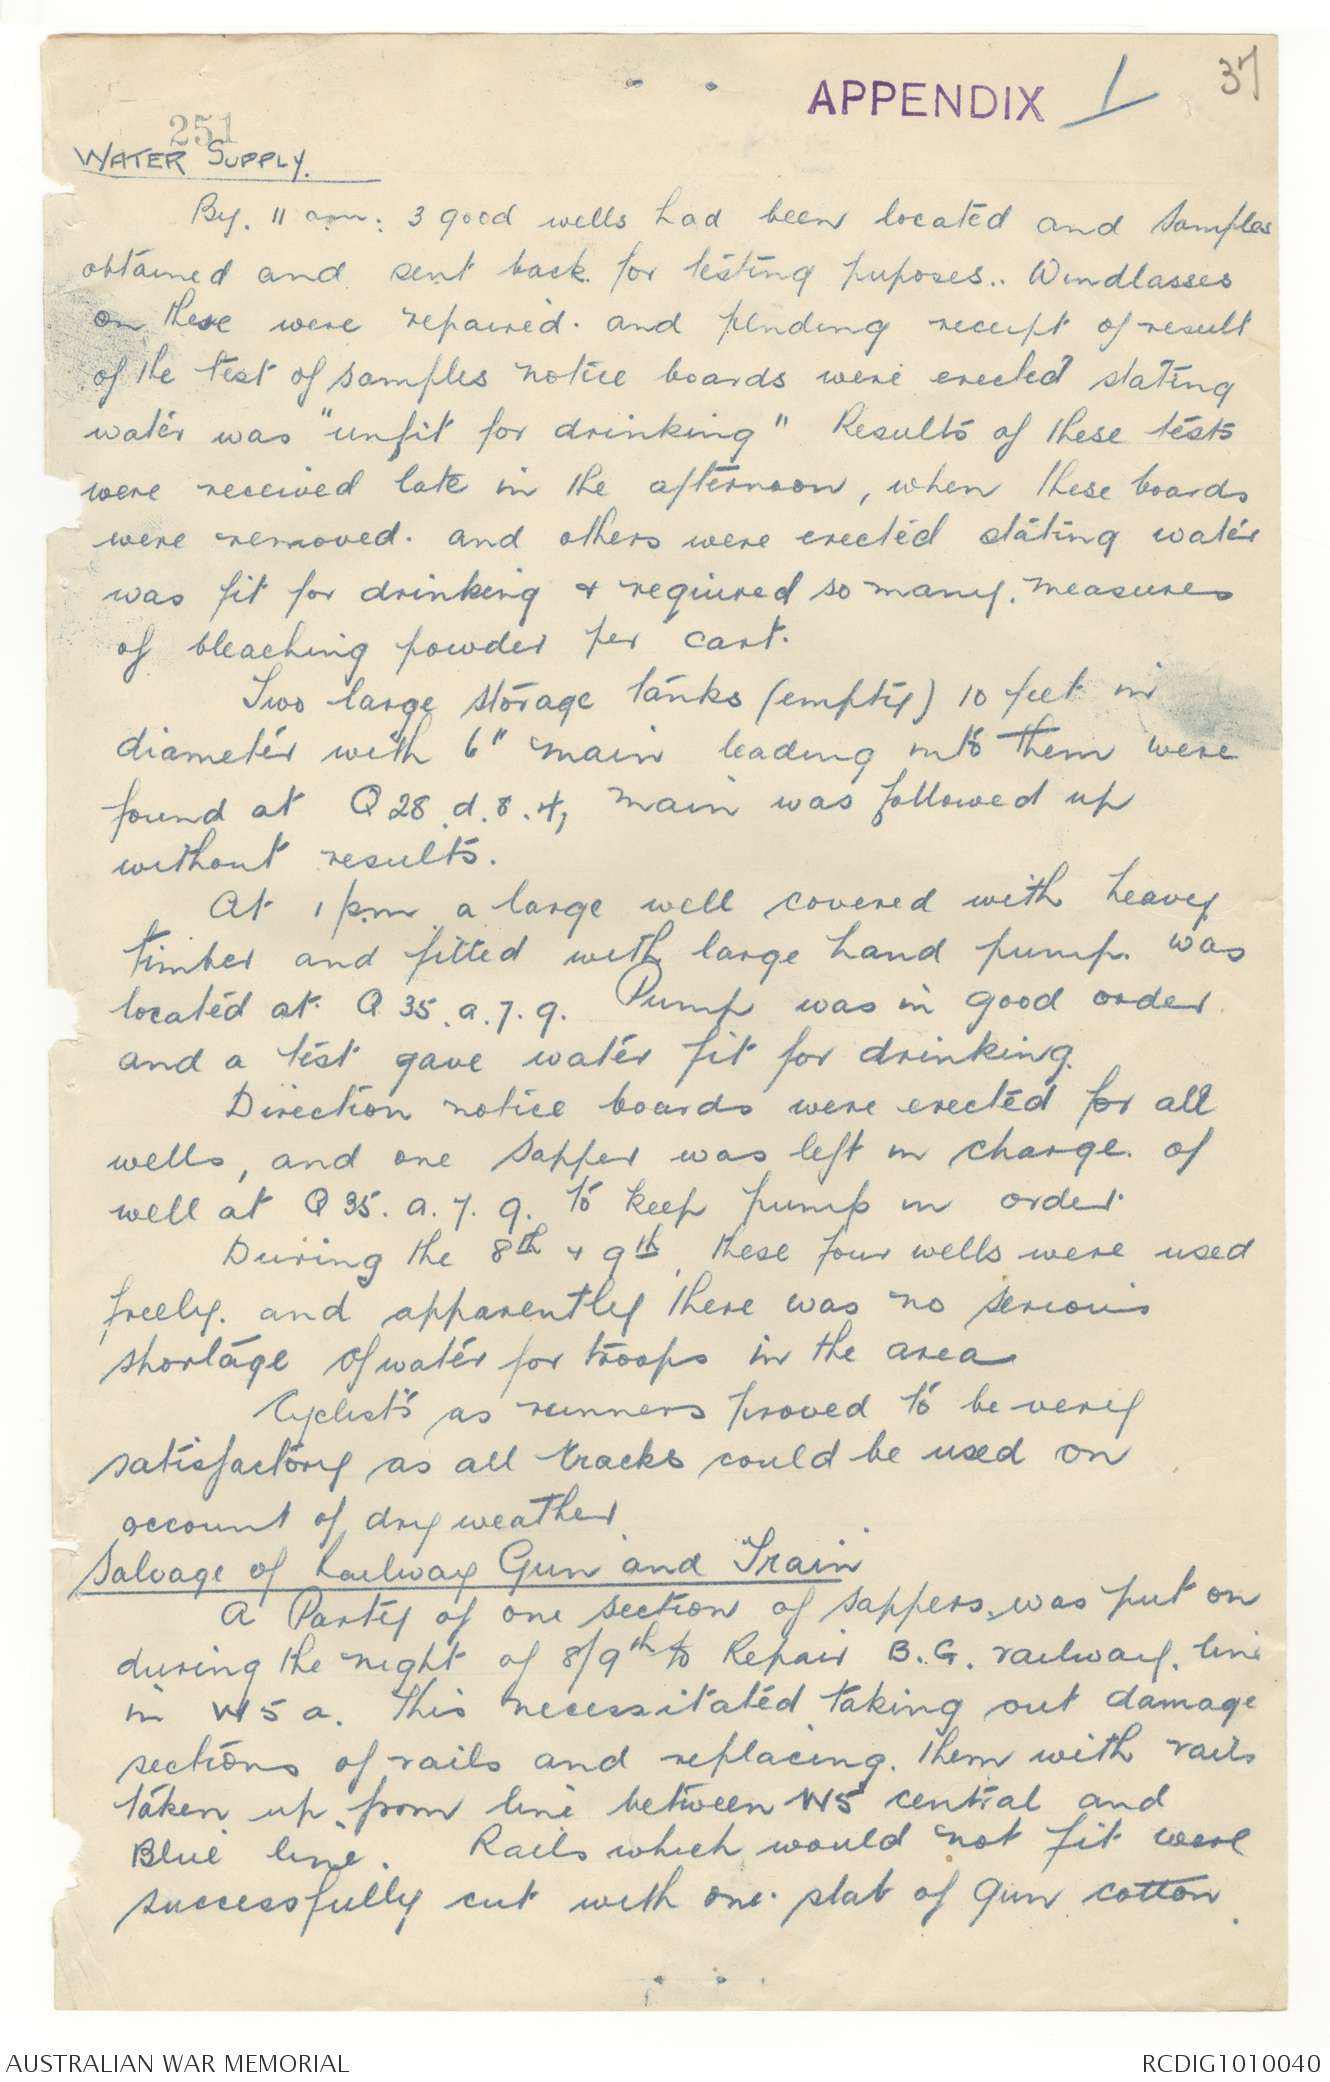 APPENDIX 1
37
251
WATER SUPPLY.
By. 11 am: 3 good wells had been located and samples
obtained and sent back for testing puposes.. Windlasses
on these were repaired. and pending receipt of result
of the test of samples notice boards were erected stating
water was "unfit for drinking" Results of these tests
were received late in the afternoon, when these boards
were removed. and others were erected stating water
was fit for drinking & required so many. measures
of bleaching powder per cart.
Two large storage tanks (empty) 10 feet in
diameter with 6" main leading into them were
found at Q 28. d. 8. 4, main was followed up
without results.
At 1 pm a large well covered with heavy
timber and fitted with large hand pump. was
located at Q 35. a. 7. 9. Pump was in good order
and a test gave water fit for drinking.
Direction notice boards were erected for all
wells, and one Sapper was left in charge. of
well at Q 35. a. 7. 9. to keep pump in order.
During the 8th & 9th. these four wells were used
freely. and apparently there was no serious
shortage of water for troops in the area
Cyclists as runners proved to be very
satisfactory as all tracks could be used on
account of dry weather.
Salvage of Railway Gun and Train
A Party of one section of sappers, was put on
during the night of 8/9th to Repair B.G. railway. line
in W5 a. This necessitated taking out damage
sections of rails and replacing. them with rails
taken up from line between W5 central and
Blue line. Rails which would not fit were
successfully cut with one slab of Gun cotton.
AUSTRALIAN WAR MEMORIAL
RCDIG1010040